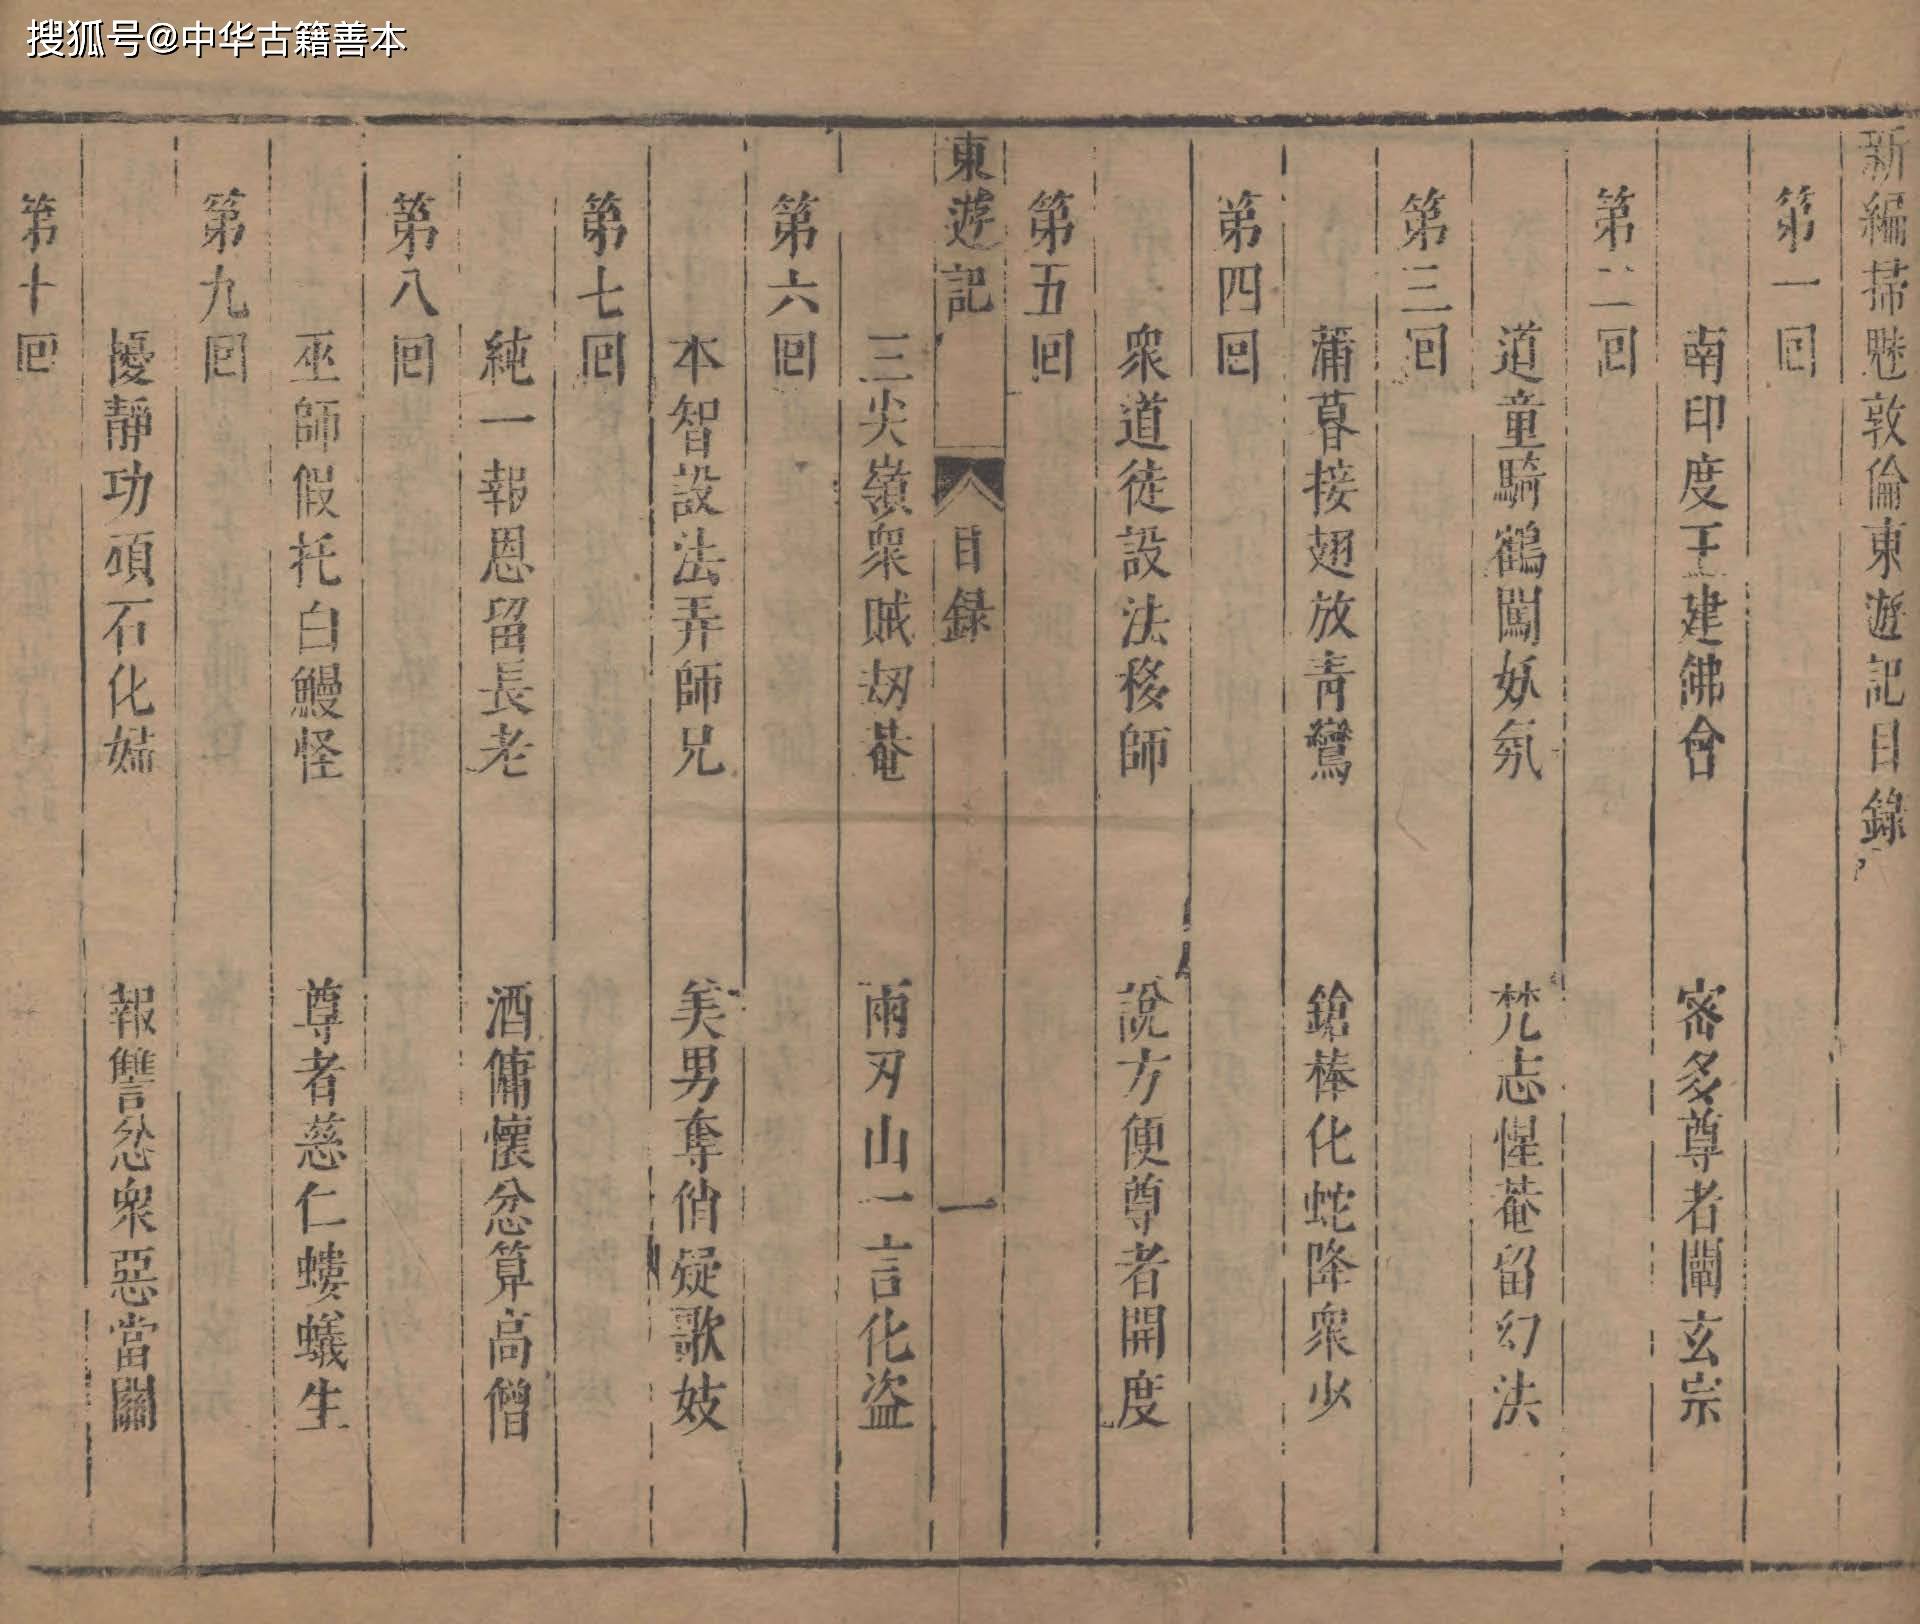 搜狐号@中华古籍善本
新編掃魅敦倫東遊記目錄
第一回
南印度王建佛會 密多尊者闡玄宗
第二回
道童騎鶴闖妖氛 梵志惺菴留幻法
第三回
蒲暮接翅放青鸞 鎗棒化蛇降衆少
第四回
衆道徒設法移師 說方便尊者開度
第五回
三尖嶺衆賊刼菴 兩刃山一言化盗
東遊記 目録 一
第六回
本智設法弄師兄 美男奪俏疑歌妓
第七回
純一報恩留長老 酒傭懷忿算高僧
第八回
巫師假托白鰻怪 尊者慈仁螻蟻生
第九回
擾靜功頑石化婦 報讐忿衆惡當關
第十回